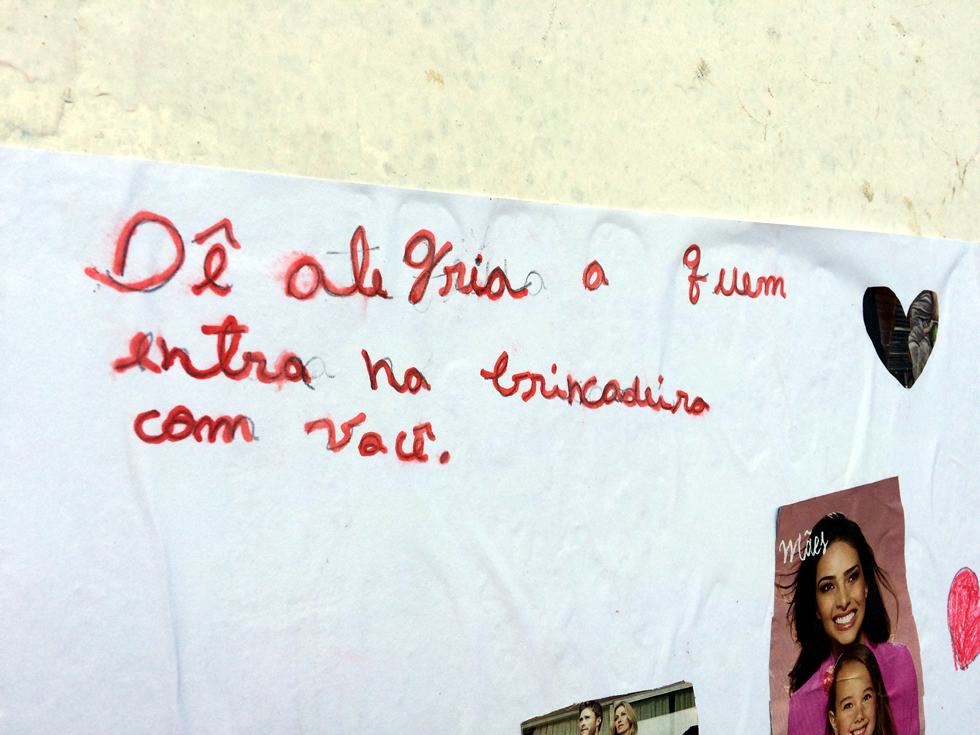 Dê alegria a quem
entra na brincadeira
com você.
Mães